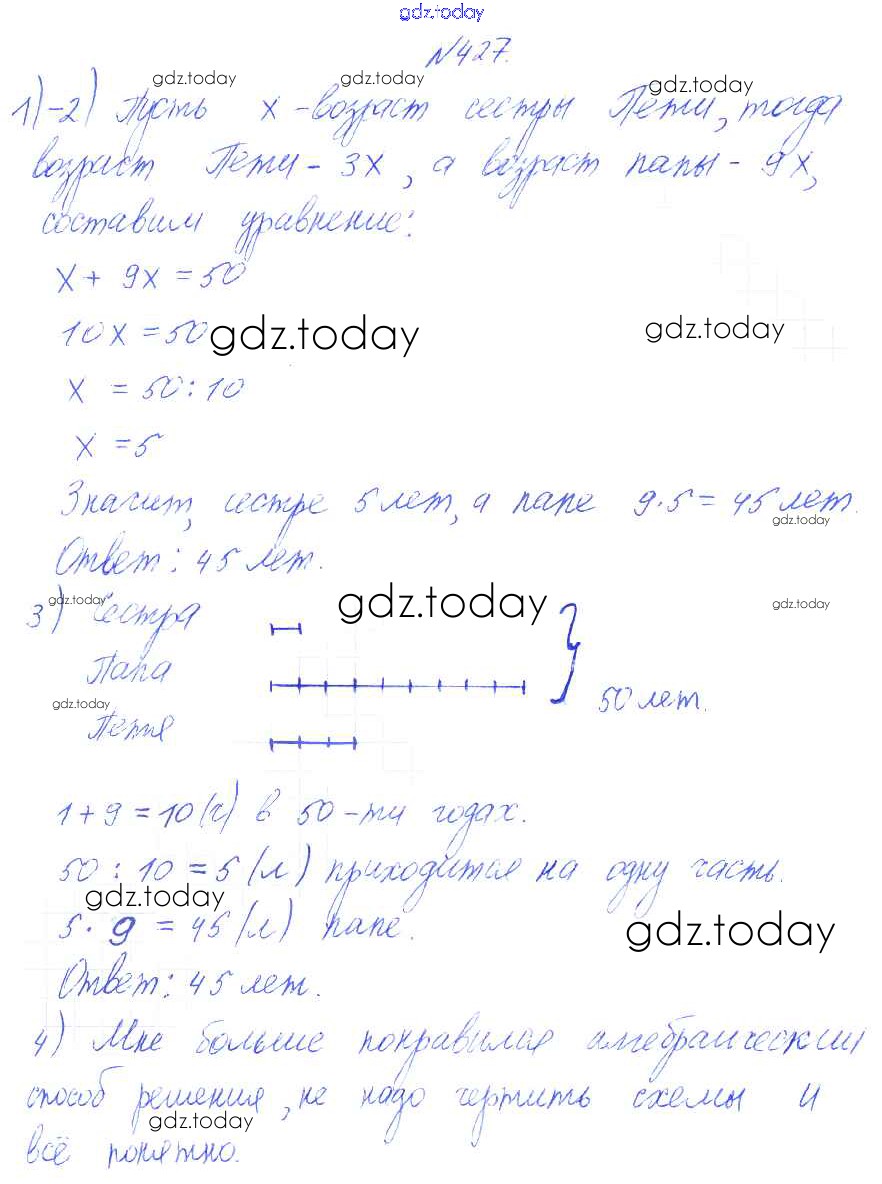 gdz.today
№427.
gdz.today gdz.today gdz.today
1)-2) Пусть х - возраст сестры Пети, тогда
возраст Пети - 3х, а возраст папы - 9х,
составим уравнение:
х + 9х = 50
10х = 50
gdz.today gdz.today
х = 50 : 10
х = 5
Значит, сестре 5 лет, а папе 9·5 = 45 лет.
gdz.today
Ответ: 45 лет.
gdz.today gdz.today gdz.today
3) Сестра
Папа
50 лет.
gdz.today
Петя
1 + 9 = 10 (ч) в 50-ти годах.
50 : 10 = 5 (л) приходится на одну часть.
gdz.today
5 · 9 = 45 (л) папе.
gdz.today
Ответ: 45 лет.
4) Мне больше понравился алгебраический
способ решения, не надо чертить схемы и
gdz.today
всё понятно.